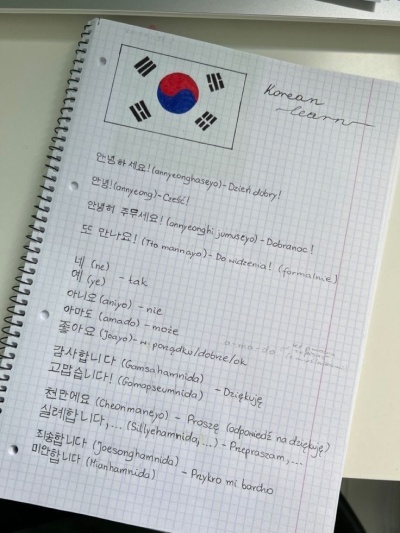 Korean
learn
안녕하세요! (annyeonghaseyo) - Dzień dobry!
안녕! (annyeong) - Cześć!
안녕히 주무세요! (annyeonghi jumuseyo) - Dobranoc!
또 만나요! (Tto mannayo) - Do widzenia! (formalnie)
네 (ne)
예 (ye) - tak
아니요 (aniyo) - nie
아마도 (amado) - może
a-ma-do
좋아요 (Joayo) - w porządku/dobrze/ok
감사합니다 (Gamsahamnida)
고맙습니다! (Gomapseumnida) - Dziękuję
천만에요 (Cheonmaneyo) - Proszę (odpowiedź na dziękuję)
실례합니다,... (Sillyehamnida,...) - Przepraszam,...
죄송합니다 (Joesonghamnida)
미안합니다 (Mianhamnida) - Przykro mi bardzo